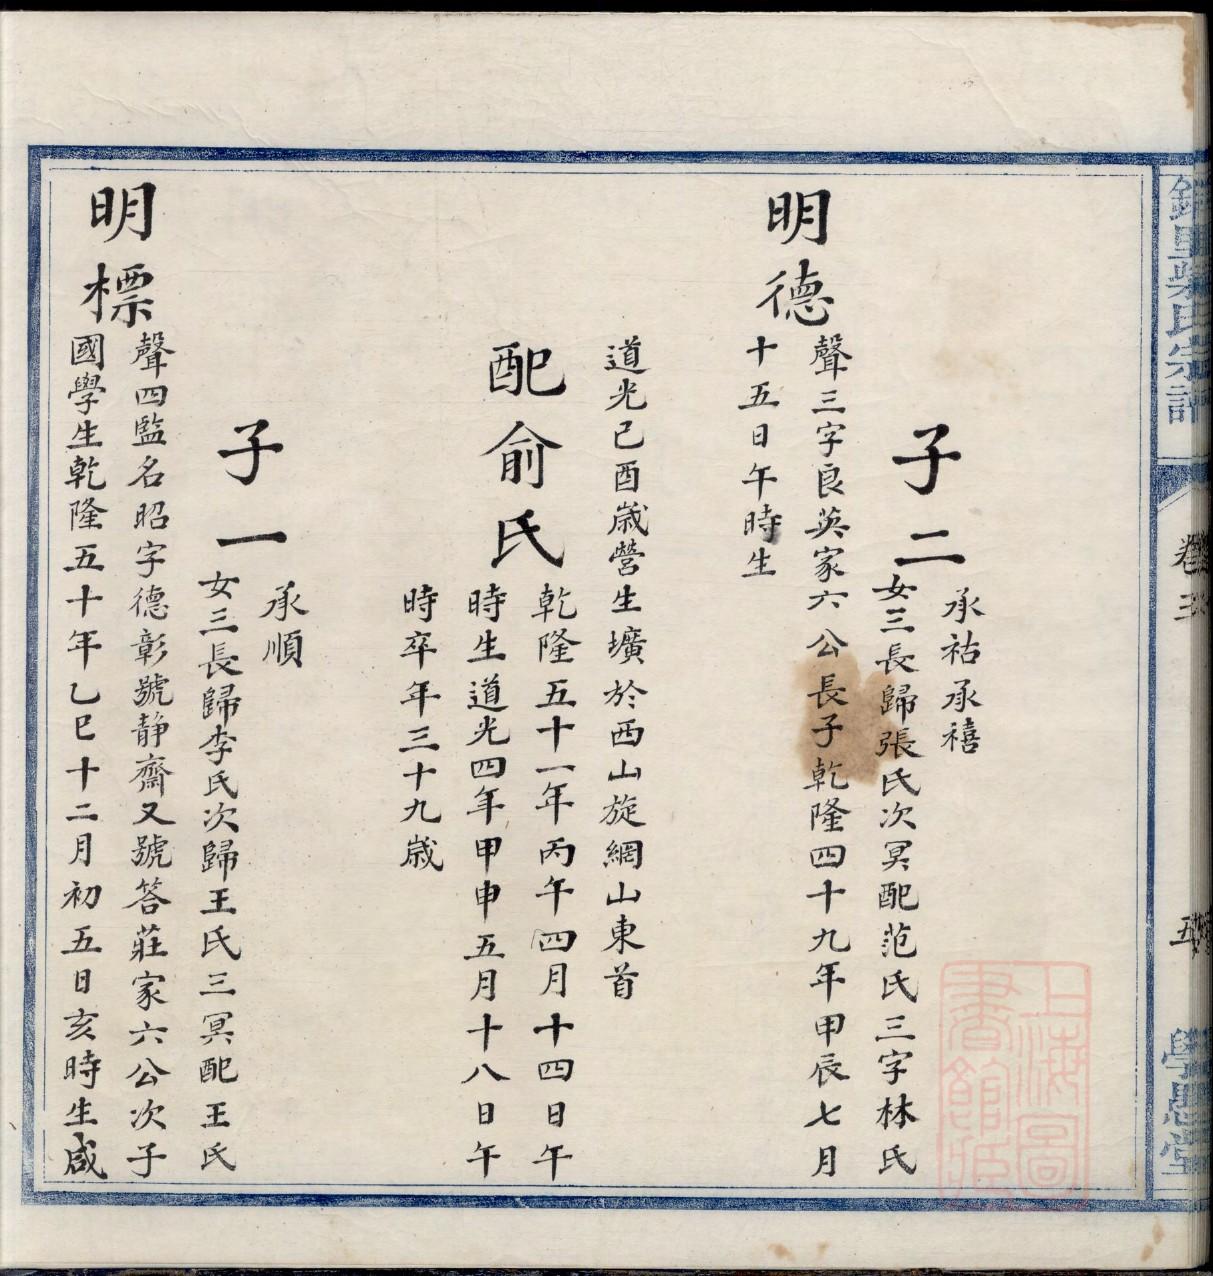 柴氏宗譜
卷三
五
學思堂
子二
承祜承禧
女三長歸張氏次冥配范氏三字林氏
明德
聲三字良英家六公長子乾隆四十九年甲辰七月
十五日午時生
道光己酉歲營生壙於西山旋網山東首
配俞氏
乾隆五十一年丙午四月十四日午
時生道光四年甲申五月十八日午
時卒年三十九歲
子一
承順
女三長歸李氏次歸王氏三冥配王氏
明標
聲四監名昭字德彰號静齋又號答莊家六公次子
國學生乾隆五十年乙巳十二月初五日亥時生咸
上海圖書館藏